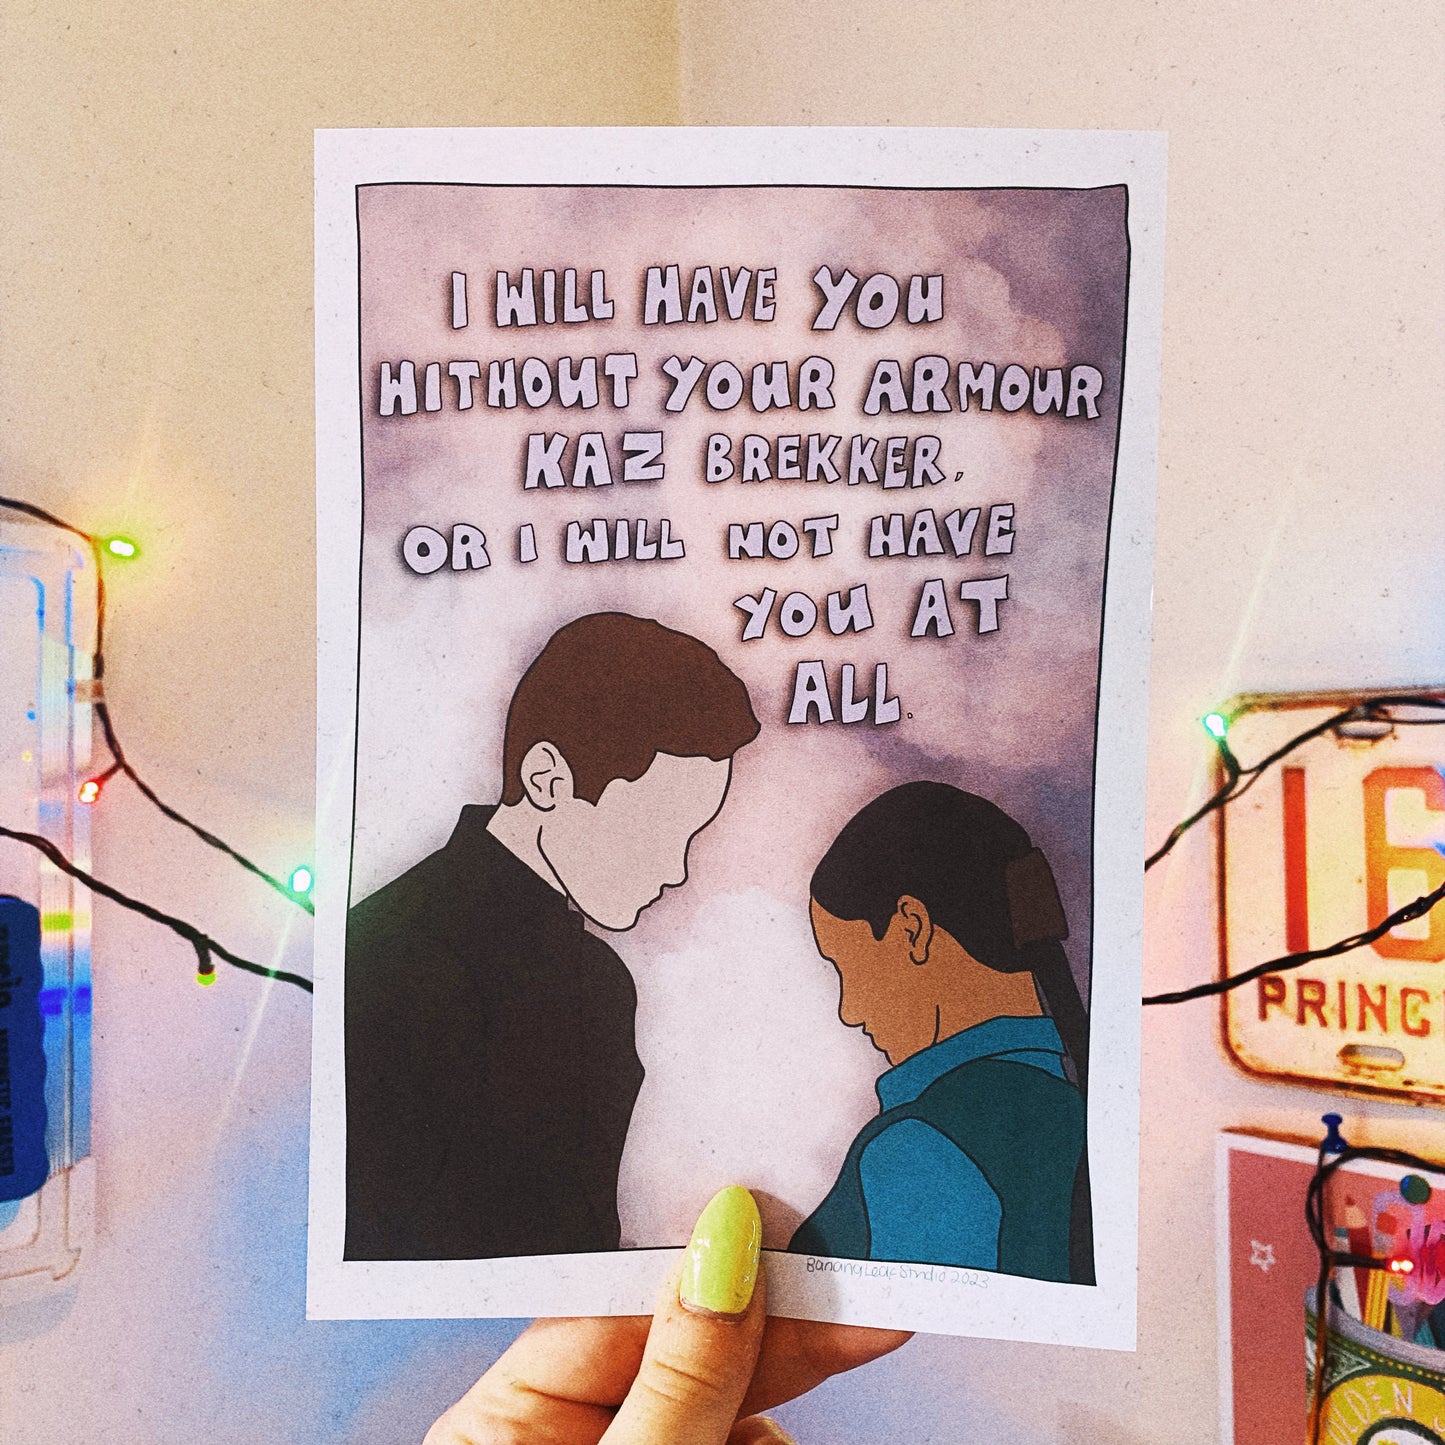 I WILL HAVE YOU
WITHOUT YOUR ARMOUR
KAZ BREKKER,
OR I WILL NOT HAVE
YOU AT
ALL.
BananaLeafStudio 2023
16
PRINC